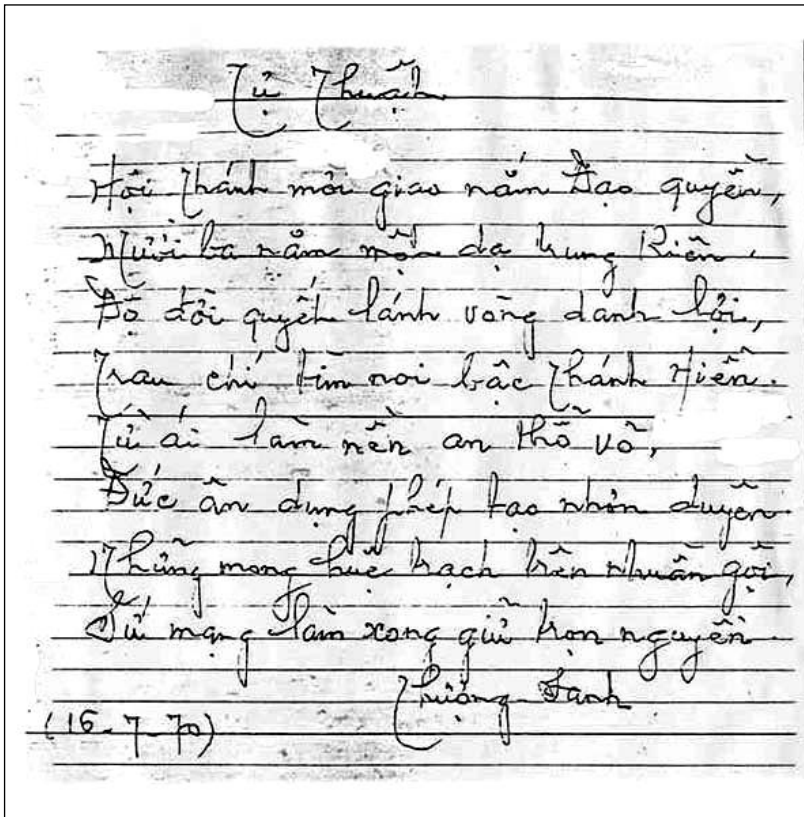 Tự Thuật
Hội Thánh mới giao nắm Đạo quyền,
Mười ba năm một dạ trung kiên.
Độ đời quyết lánh vòng danh lợi,
Trau chí tìm noi bậc Thánh Hiền.
Từ ái làm nền an thổ võ,
Đức ân dụng phép tạo nhơn duyên
Những mong huệ trạch trên nhuần gội,
Sứ mạng làm xong giữ trọn nguyền.
Thượng Sanh
(16-7-70)